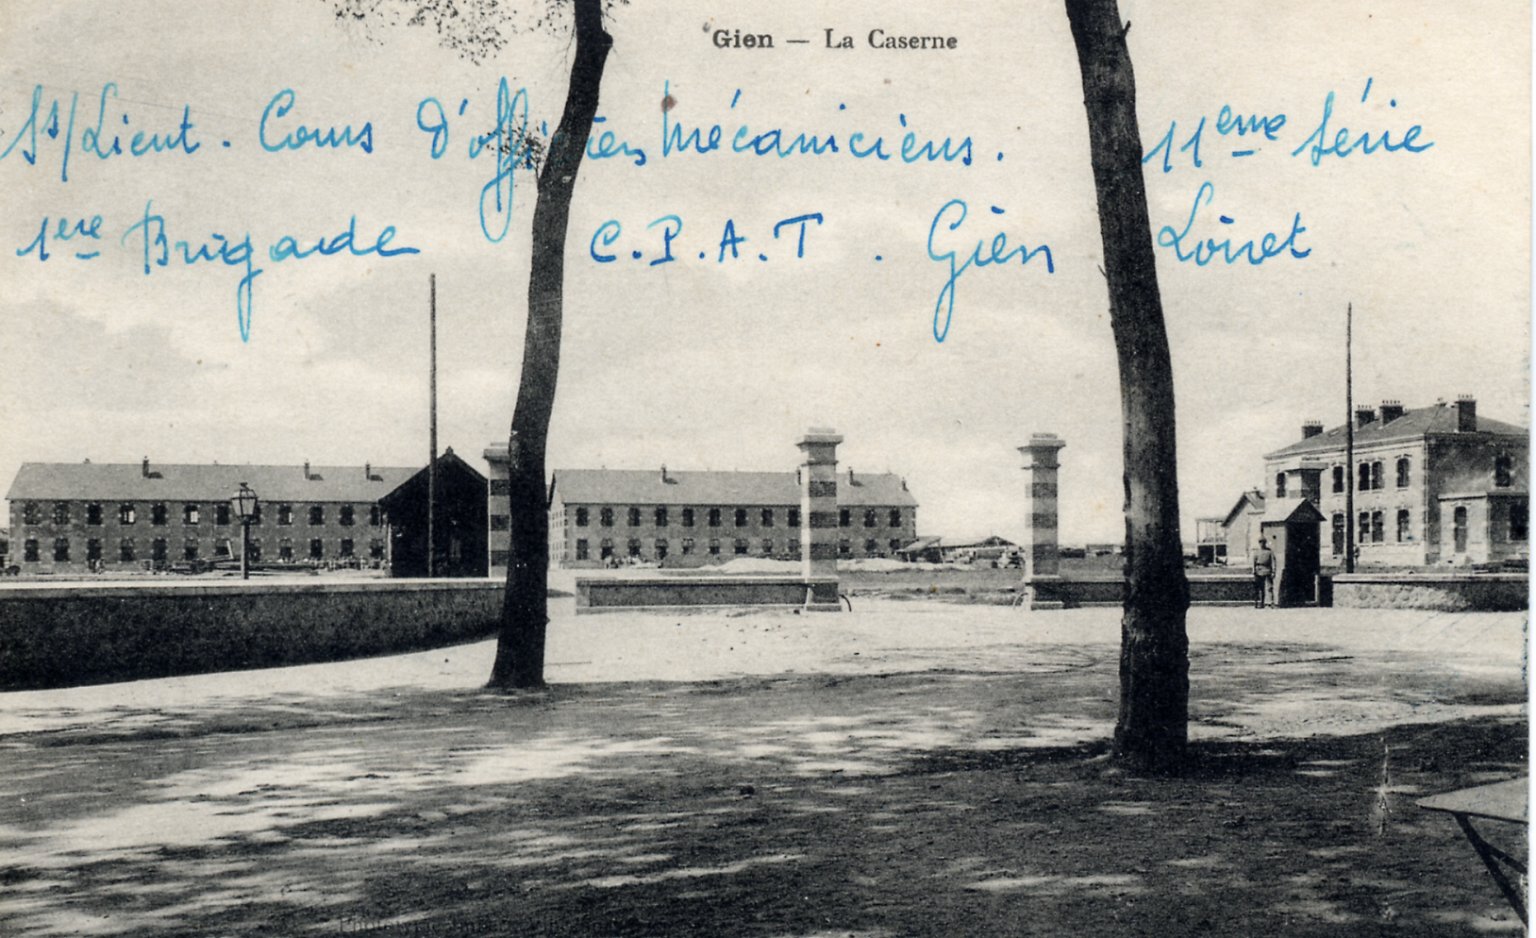 Gien — La Caserne
Ss/Lieut. Cours d'officiers Mécaniciens. 11eme Série
1ere Brigade C.P.A.T. Gien Loiret